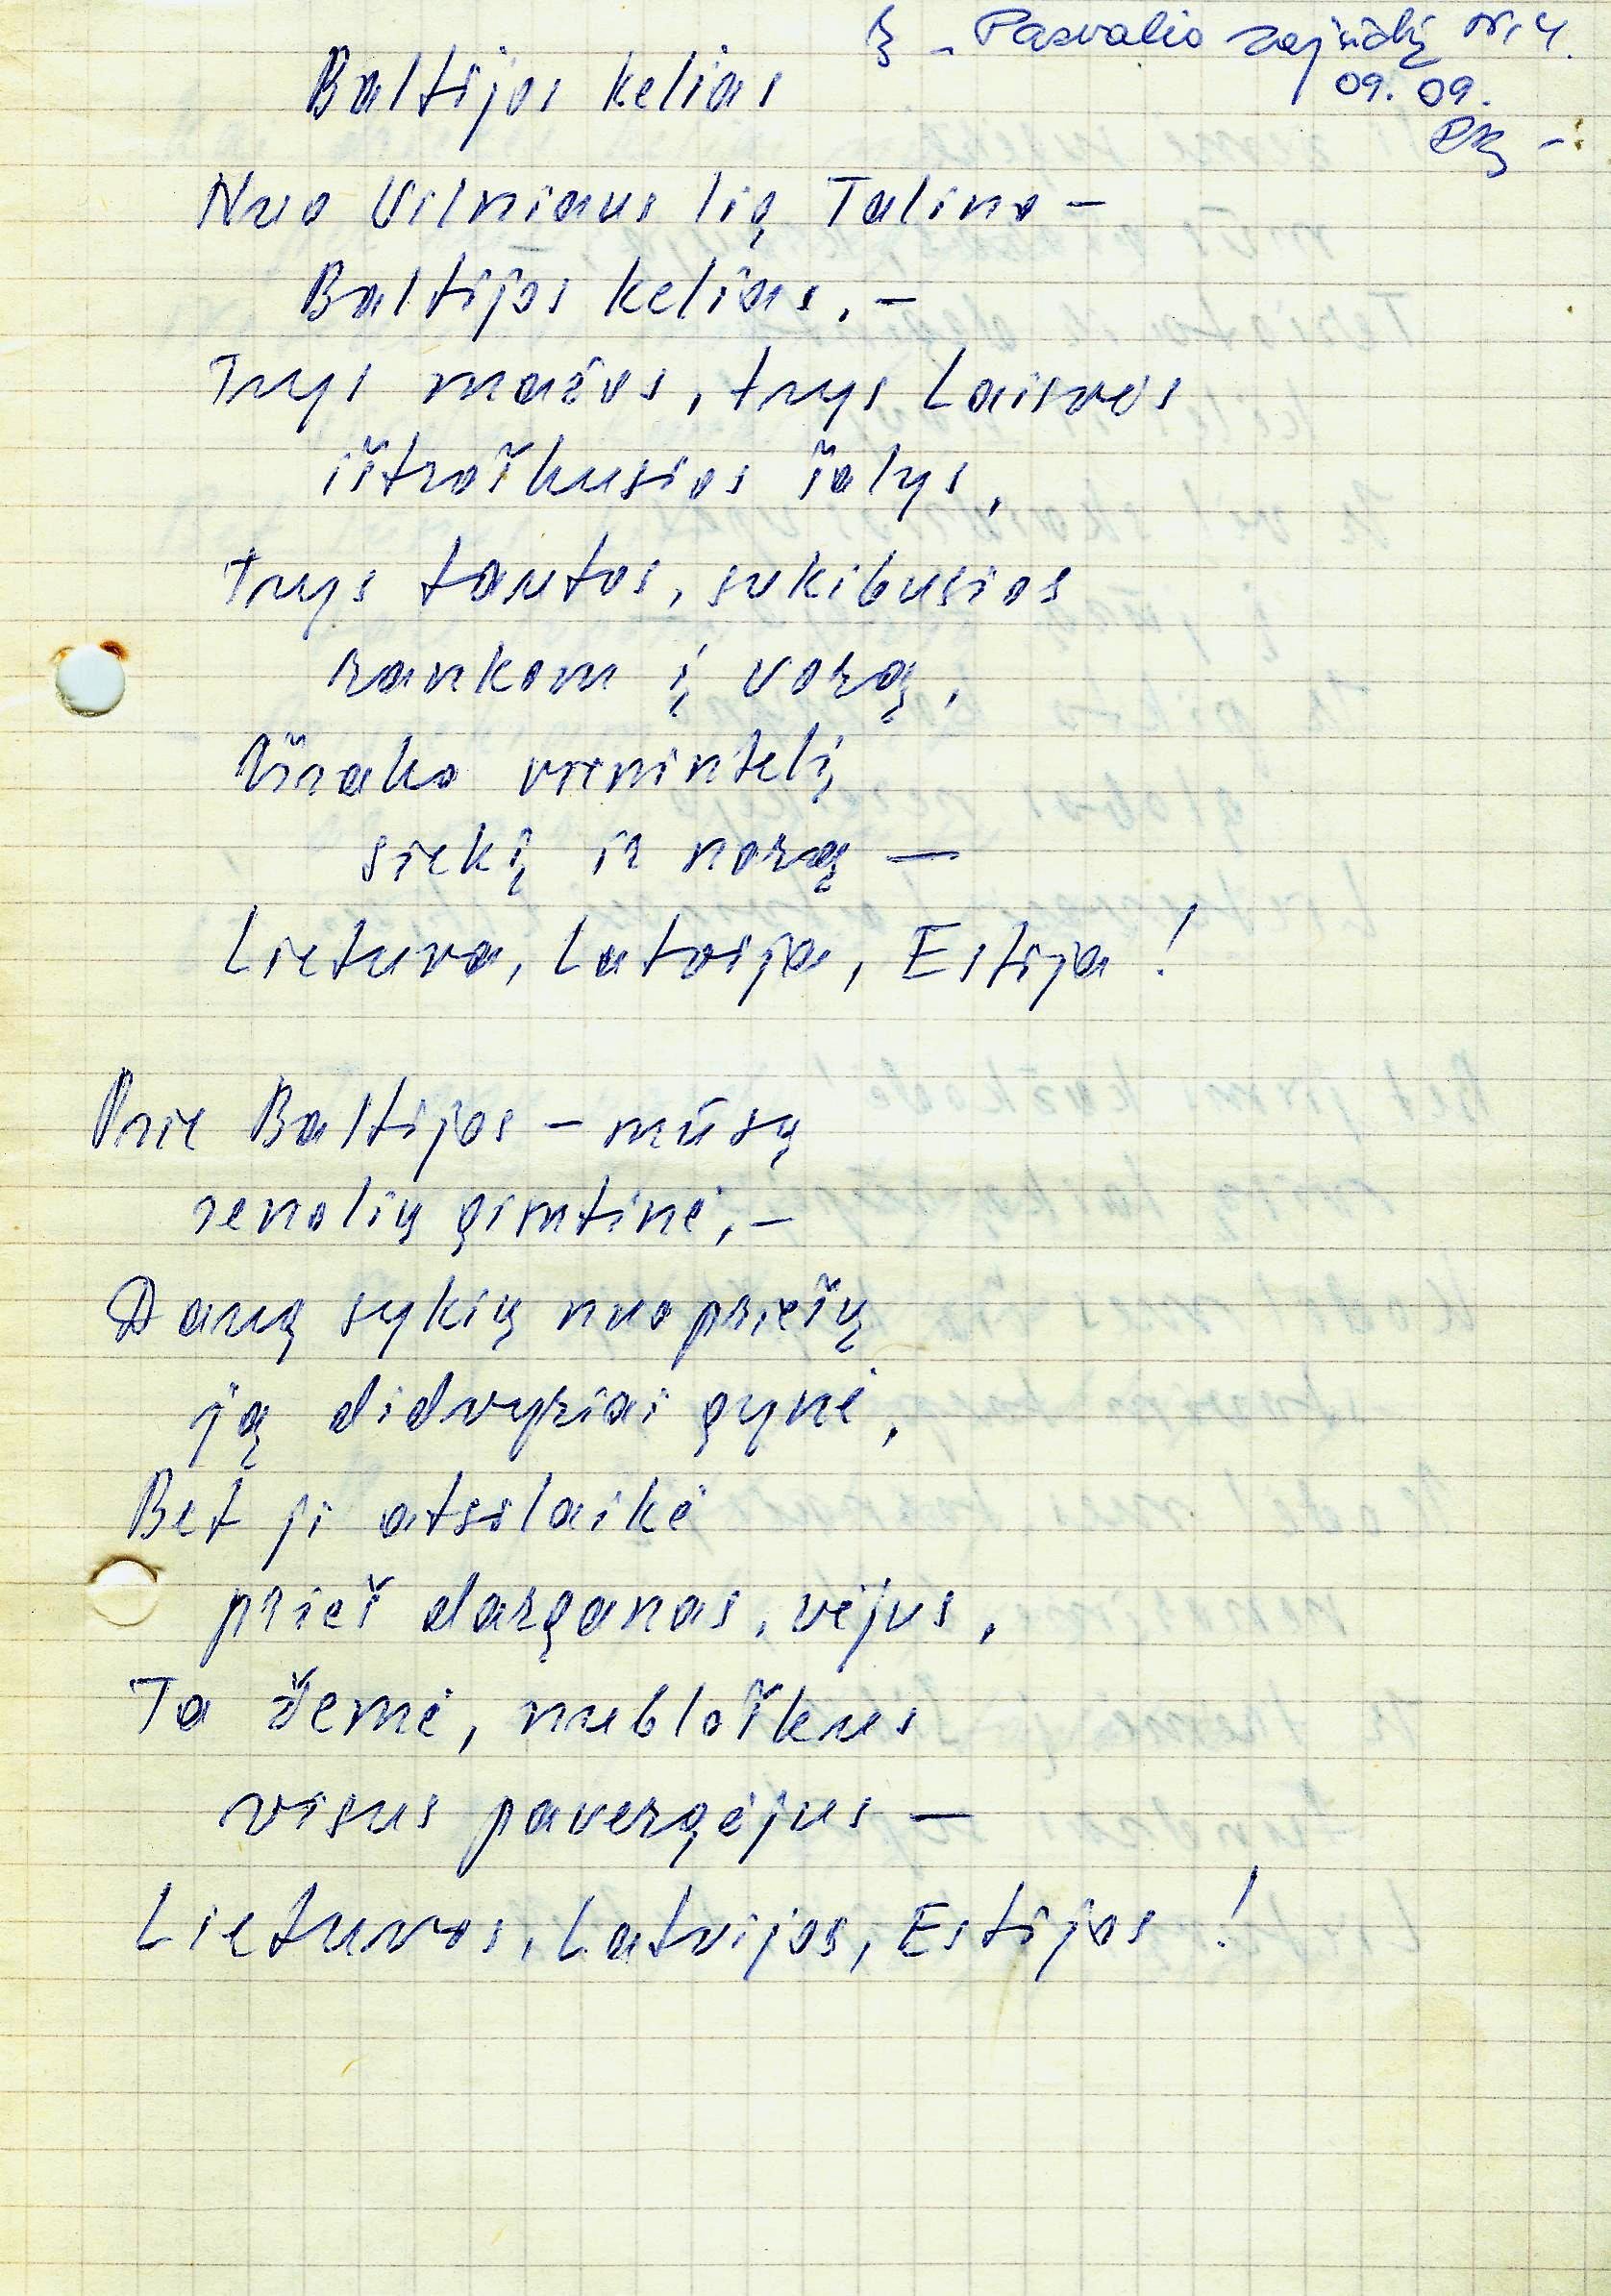 Į - Pasvalio Sąjūdį Nr. 4.
09. 09.
Baltijos kelias
Nuo Vilniaus lig Talino -
Baltijos kelias, -
Trys mažos, trys Laisvės
ištroškusios šalys,
Trys tautos, sukibusios
rankom į vorą,
Išsako vienintelį
siekį ir norą -
Lietuva, Latvija, Estija!
Prie Baltijos - mūsų
senolių gimtinė, -
Daug sykių nuo priešų
ją didvyriai gynė,
Bet ji atsilaikė
prieš darganas, vėjus,
Ta žemė, nubloškus
visus pavergėjus -
Lietuvos, Latvijos, Estijos!